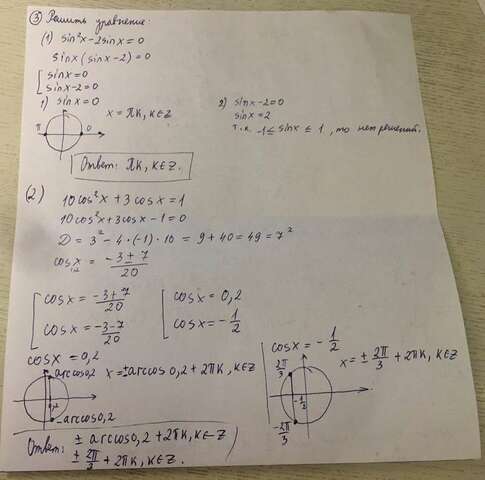 ③ Решить уравнение:
(1) sin²x-2sinx=0
sinx(sinx-2)=0
[ sinx=0
sinx-2=0
1) sinx=0
x=πk, k∈Z
π 0
2) sinx-2=0
sinx=2
т.к. -1≤sinx≤1, то нет решений.
Ответ: πk, k∈Z.
(2) 10cos²x+3cosx=1
10cos²x+3cosx-1=0
D=3²-4·(-1)·10=9+40=49=7²
cosx₁,₂=(-3±7)/20
[ cosx=(-3+7)/20
cosx=(-3-7)/20
[ cosx=0,2
cosx=-1/2
cosx=0,2
arccos0,2 x=±arccos0,2+2πk, k∈Z
0,2
-arccos0,2
cosx=-1/2
x=±2π/3+2πk, k∈Z
2π/3
-1/2
-2π/3
Ответ: ±arccos0,2+2πk, k∈Z
±2π/3+2πk, k∈Z.